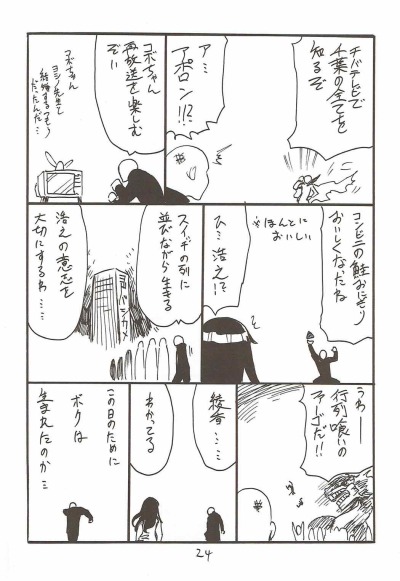 チバテレビで
千葉の全てを
知るぞ
ア…
アポロン!!?
コボちゃん
再放送を楽しむ
ぞい
コボちゃん
ヨシノ先生と
結婚するつもり
だったんだ…
コンビニの鮭おにぎり
おいしくなったね
※ほんとに
おいしい
ひ…浩之!?
スイギの列に
並びながら生きる
浩之の意志を
大切にするわ……
うわー
行列喰いの
アーゴだ!!
綾香……
わかってる
この日のために
ボクは
生まれたのか…
24